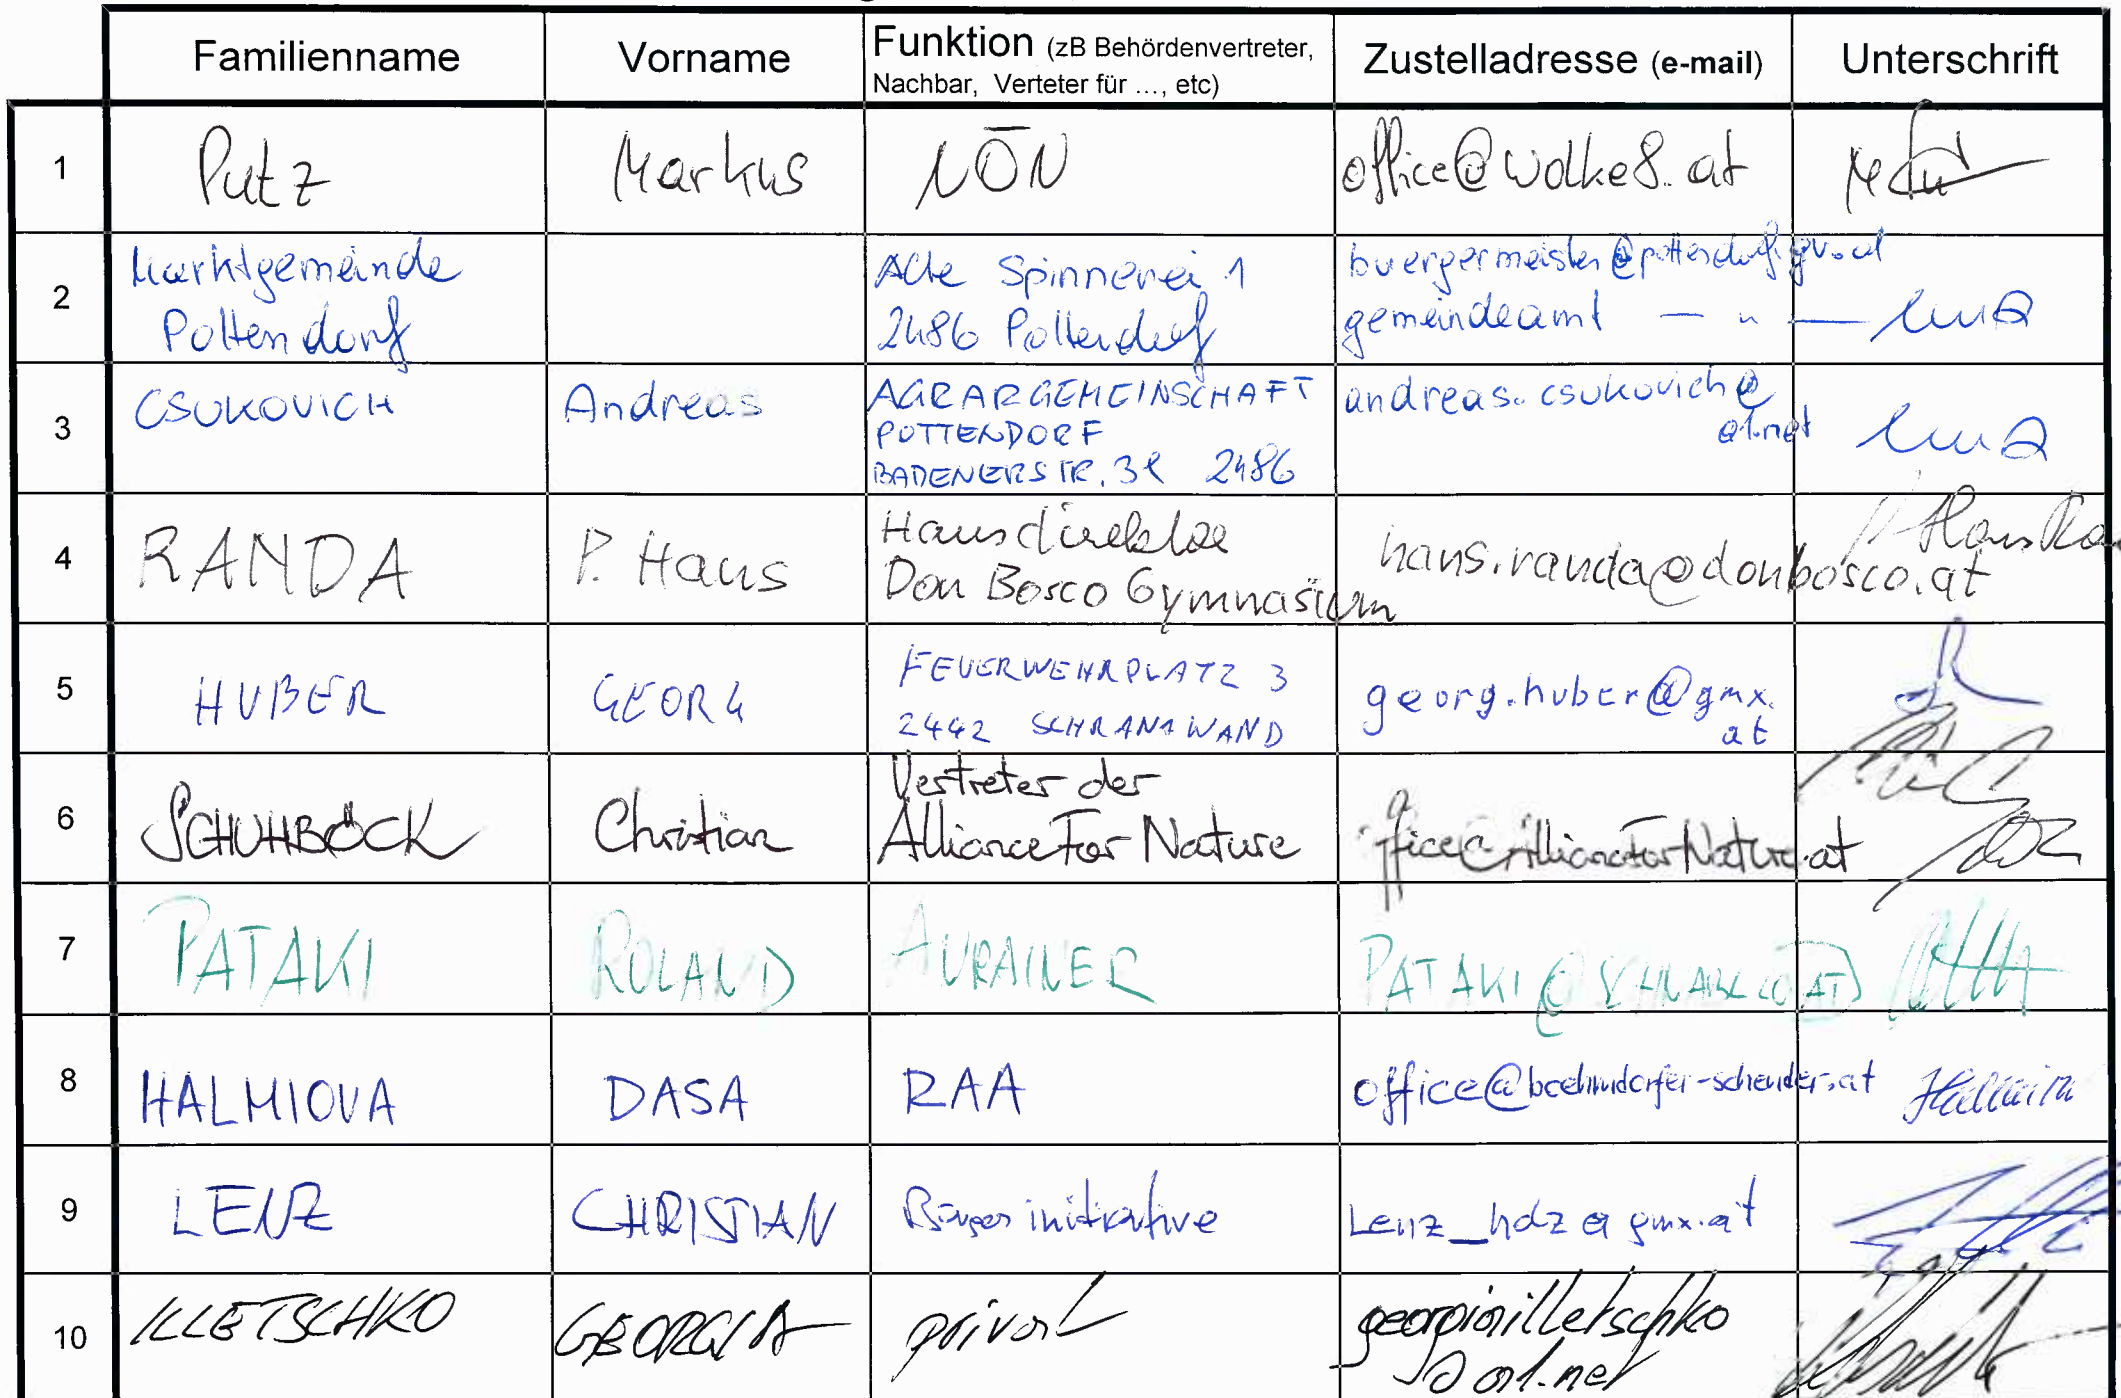 Familienname Vorname Funktion (zB Behördenvertreter, Nachbar, Verteter für ..., etc) Zustelladresse (e-mail) Unterschrift
1 Putz Markus NÖN office@wolke8.at
2 Marktgemeinde Pottendorf Alte Spinnerei 1 2486 Pottendorf buergermeister@pottendorf.gv.at gemeindeamt — " —
3 CSUKOVICH Andreas AGRARGEMEINSCHAFT POTTENDORF BADENERSTR. 2486 andreas.csukovich@a1.net
4 RANDA P. Hans Hausdirektor Don Bosco Gymnasium hans.randa@donbosco.at
5 HUBER GEORG FEUERWEHRPLATZ 3 2442 SCHRANAWAND georg.huber@gmx.at
6 SCHUHBÖCK Christian Vertreter der Alliance For Nature office@AllianceForNature.at
7 PATAKI ROLAND AURAINER
8 HALMIOVA DASA RAA
9 LENZ CHRISTIAN Bürgerinitiative Lenz_hdz@gmx.at
10 ILLETSCHKO GEORGIA privat